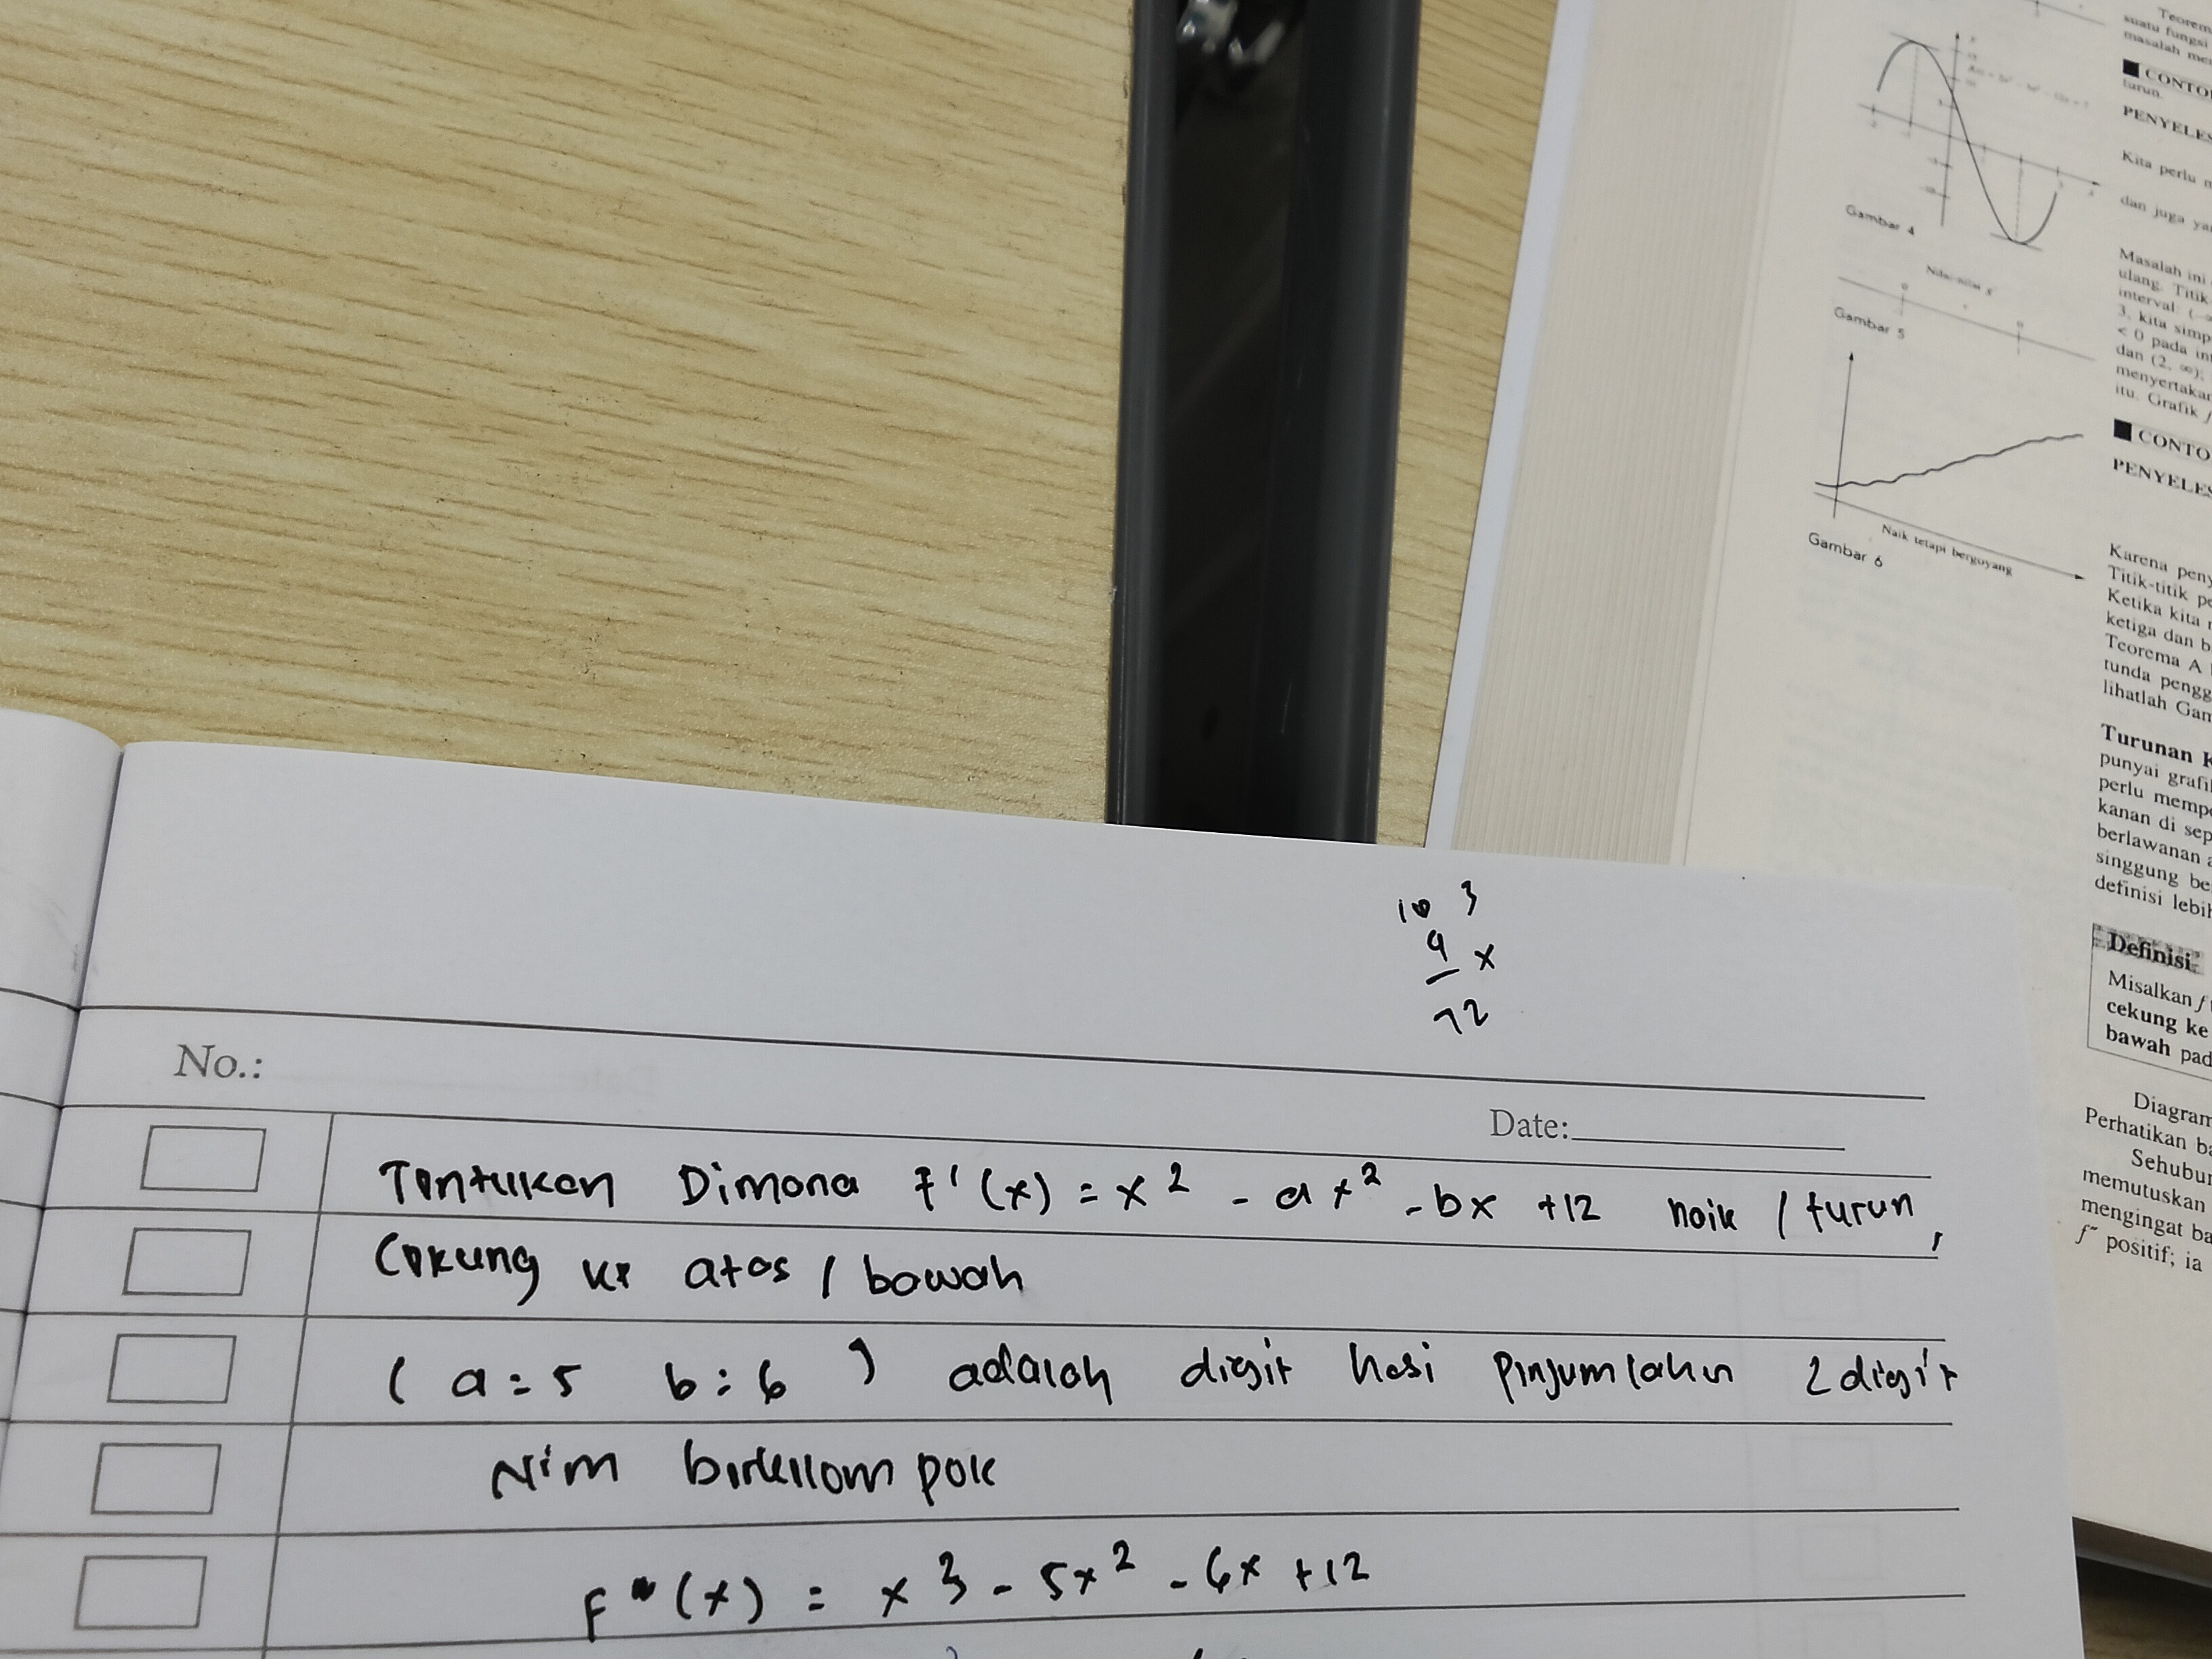 10 3
9 x
72
No.:
Date:
Tentukan Dimana f'(x) = x² - ax² - bx + 12 naik / turun,
Cekung ke atas / bawah
( a = 5 b : 6 ) adalah digit hasi penjumlahan 2 digit
Nim berkelompok
F (x) = x³ - 5x² - 6x + 12
Teorem
suatu fungsi
masalah me
CONTO
turun.
PENYELES
Kita perlu m
dan juga ya
Gambar 4
Masalah ini
ulang. Titik
interval: (
3, kita simp
< 0 pada in
dan (2, ∞);
menyertakan
itu. Grafik f
Nilai-nilai x
Gambar 5
CONTO
PENYELES
Naik tetapi bergoyang
Gambar 6
Karena peny
Titik-titik pe
Ketika kita
ketiga dan b
Teorema A
tunda pengg
lihatlah Gam
Turunan K
punyai grafi
perlu mempe
kanan di sep
berlawanan a
singgung be
definisi lebih
Definisi
Misalkan f
cekung ke
bawah pad
Diagram
Perhatikan ba
Sehubun
memutuskan
mengingat ba
f" positif; ia